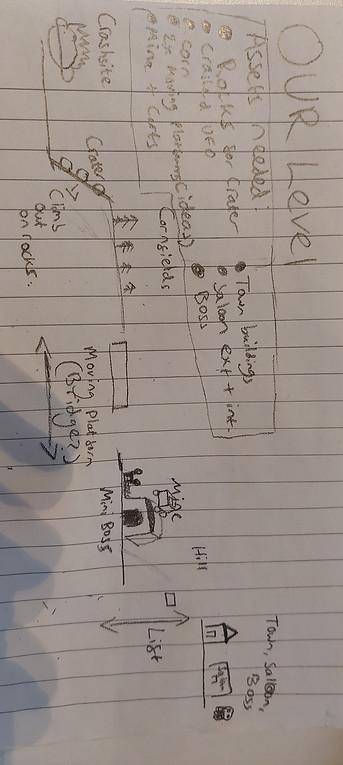 OUR Level
Assets needed:
Rocks for Crater
Crashed UFO
Corn
2x moving platforms (ideas)
Mine + Carts
Town buildings
Saloon ext + int.
Boss
Crashsite
Crater
Climb
out
on rocks.
Cornfields
Moving Platform
(Bridge?)
Mine
Mini Boss
Hill
List
Town, Saloon,
Boss
Saloon